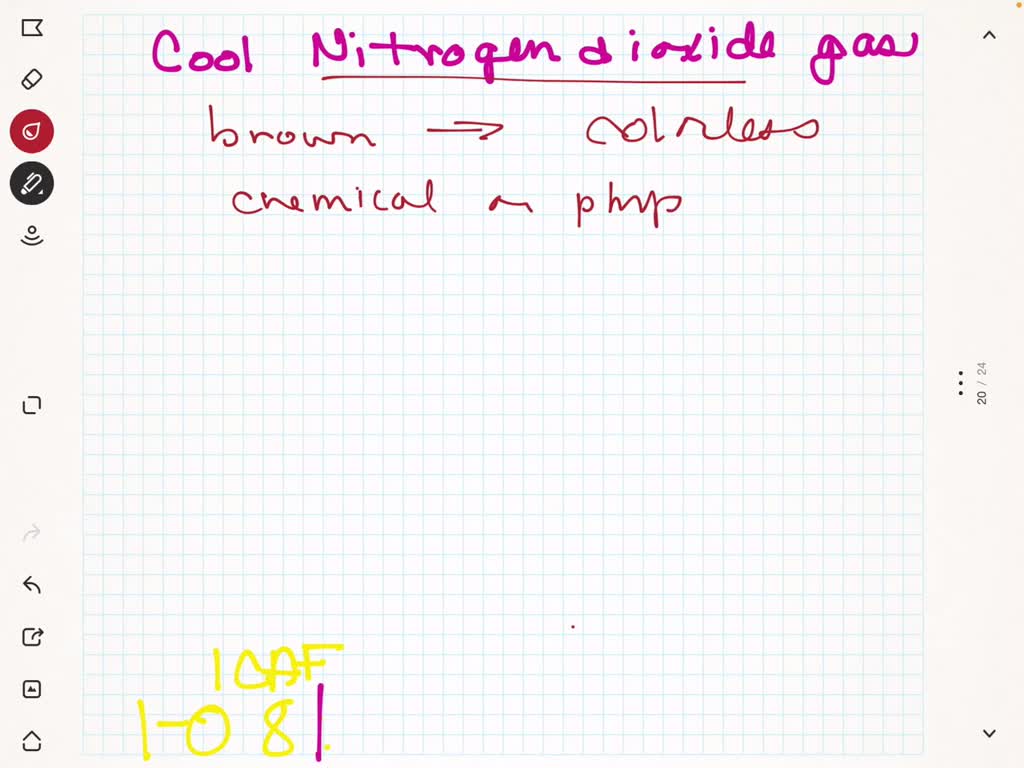 Cool Nitrogen dioxide gas
brown → colorless
chemical or phys
20 / 24